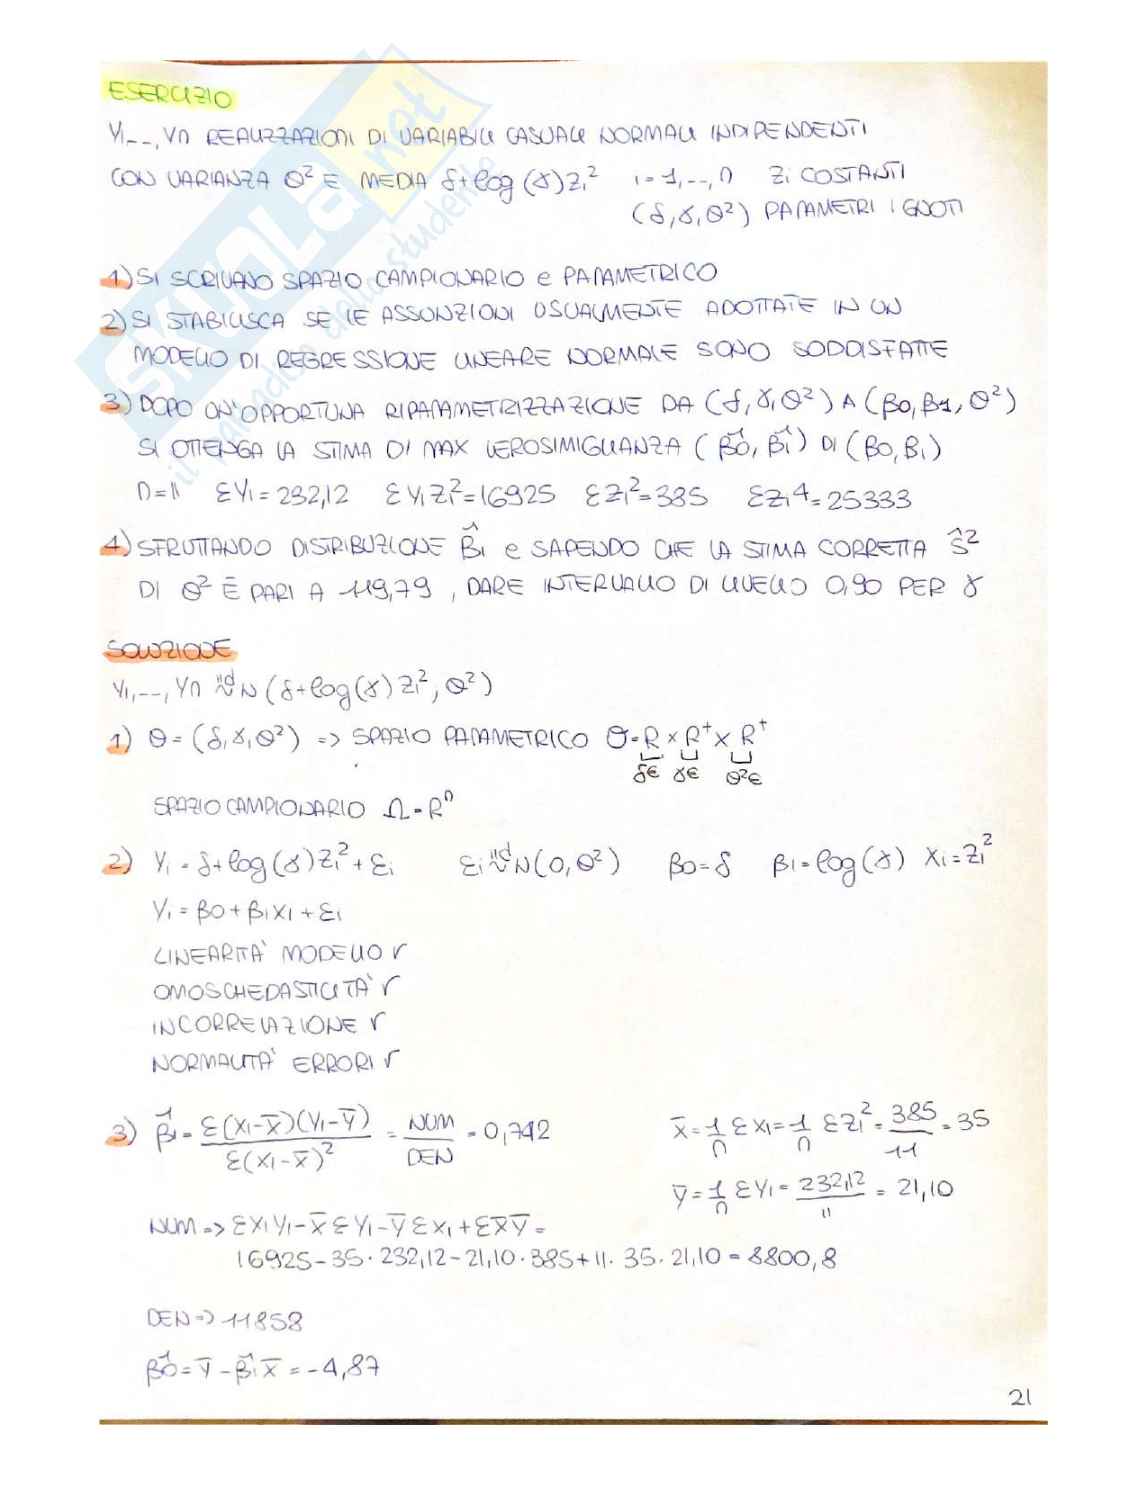 ESERCIZIO
Y1--, Yn REALIZZAZIONI DI VARIABILI CASUALI NORMALI INDIPENDENTI
CON VARIANZA θ² E MEDIA δ+log(γ)Zi² i=1,--,n Zi COSTANTI
(δ,γ,θ²) PARAMETRI IGNOTI
1) SI SCRIVANO SPAZIO CAMPIONARIO e PARAMETRICO
2) SI STABILISCA SE LE ASSUNZIONI USUALMENTE ADOTTATE IN UN
MODELLO DI REGRESSIONE LINEARE NORMALE SONO SODDISFATTE
3) DOPO UN'OPPORTUNA RIPARAMETRIZZAZIONE DA (δ,γ,θ²) A (β0,β1,θ²)
SI OTTENGA LA STIMA DI MAX VEROSIMIGLIANZA (β̂0,β̂1) DI (β0,β1)
n=11 ΣYi=232,12 ΣYiZi²=16925 ΣZi²=385 ΣZi⁴=25333
4) SFRUTTANDO DISTRIBUZIONE β̂1 e SAPENDO CHE LA STIMA CORRETTA Ŝ²
DI θ² È PARI A 119,79, DARE INTERVALLO DI LIVELLO 0,90 PER γ
SOLUZIONE
Y1,--,Yn iid~N(δ+log(γ)Zi²,θ²)
1) θ=(δ,γ,θ²) => SPAZIO PARAMETRICO Θ=R×R⁺×R⁺
δ∈ γ∈ θ²∈
SPAZIO CAMPIONARIO Ω=Rⁿ
2) Yi=δ+log(γ)Zi²+εi εi iid~N(0,θ²) β0=δ β1=log(γ) Xi=Zi²
Yi=β0+β1Xi+εi
LINEARITÀ MODELLO √
OMOSCHEDASTICITÀ √
INCORRELAZIONE √
NORMALITÀ ERRORI √
3) β̂1=Σ(Xi-X̄)(Yi-Ȳ)/Σ(Xi-X̄)²=NUM/DEN=0,742 X̄=1/n ΣXi=1/n ΣZi²=385/11=35
Ȳ=1/n ΣYi=232,12/11=21,10
NUM=>ΣXiYi-X̄ΣYi-ȲΣXi+ΣX̄Ȳ=
16925-35·232,12-21,10·385+11·35·21,10=8800,8
DEN=>11858
β̂0=Ȳ-β̂1X̄=-4,87
21
SKUOLA.net
il paradiso dello studente